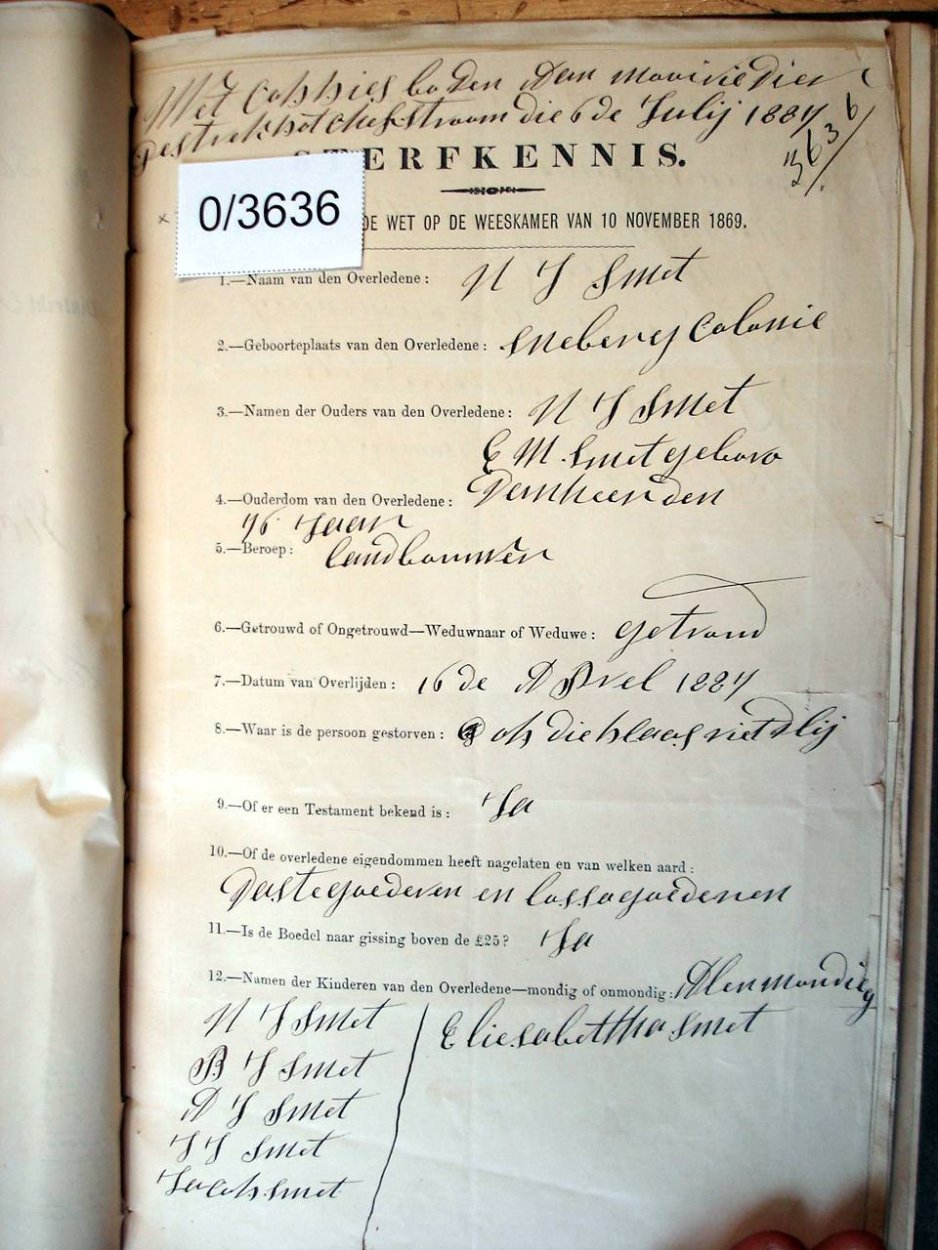 Met Cophies boden Aan mooivievier
destrekt potchefstroom die 6de Julij 1887
3636
STERFKENNIS.
0/3636
DE WET OP DE WEESKAMER VAN 10 NOVEMBER 1869.
1.—Naam van den Overledene: N J Smet
2.—Geboorteplaats van den Overledene: Colonie
3.—Namen der Ouders van den Overledene: N J Smet
E M Smet gebore
4.—Ouderdom van den Overledene: Vanheerden
76 Jaar
5.—Beroep: landbouwer
6.—Getrouwd of Ongetrouwd—Weduwnaar of Weduwe: getroud
7.—Datum van Overlijden: 16de Aprel 1887
8.—Waar is de persoon gestorven: op die plaas rietvlij
9.—Of er een Testament bekend is: Ja
10.—Of de overledene eigendommen heeft nagelaten en van welken aard:
Vastegoederen en lossegoederen
11.—Is de Boedel naar gissing boven de £25? Ja
12.—Namen der Kinderen van den Overledene—mondig of onmondig: Allen mondig
N J Smet
Eliesabettha Smet
P J Smet
A J Smet
J J Smet
Jacob Smet